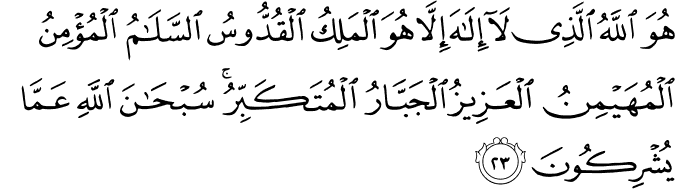 هُوَ ٱللَّهُ ٱلَّذِى لَآ إِلَـٰهَ إِلَّا هُوَ ٱلْمَلِكُ ٱلْقُدُّوسُ ٱلسَّلَـٰمُ ٱلْمُؤْمِنُ
ٱلْمُهَيْمِنُ ٱلْعَزِيزُ ٱلْجَبَّارُ ٱلْمُتَكَبِّرُ ۚ سُبْحَـٰنَ ٱللَّهِ عَمَّا
يُشْرِكُونَ ٢٣